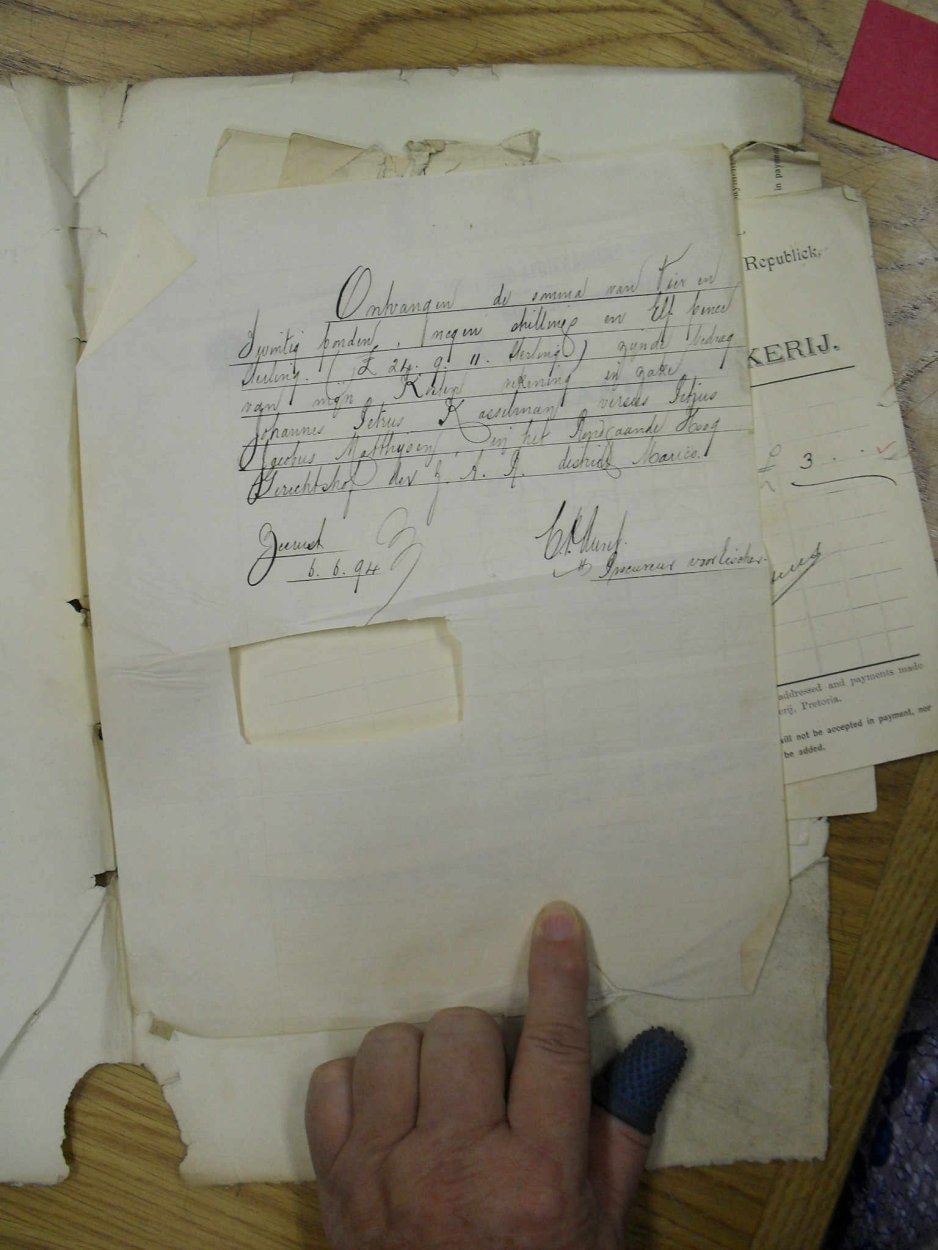 Ontvangen de somma van Vier en
Twintig ponden, negen shillings en Elf pence
Sterling. (£ 24. 9. 11. Sterling) zynde bedrag
van mijn Kosten rekening in zake
Johannes Petrus Kasselman versus Petrus
Jacobus Matthysen, in het Rondgaande Hoog
Gerechtshof der Z. A. R. district Marico.
Zeerust
6. 6. 94
Procureur voor Eischer.
in paym
Republiek,
KERIJ.
£ 3
addressed and payments made
erij, Pretoria.
will not be accepted in payment, nor
be added.